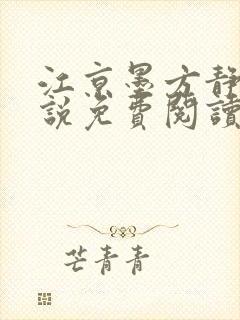 江京墨方静
說免費閱讀
芒青青